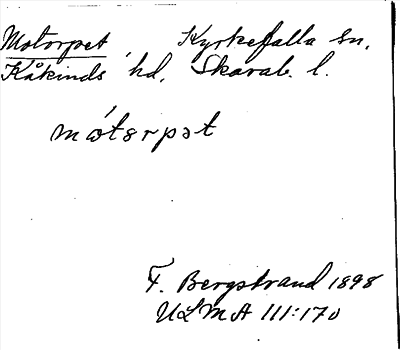 Motorpet Kyrkefalla sn,
Kåkinds hd, Skarab. l.
mótərpət
F. Bergstrand 1898
ULMA 111:170